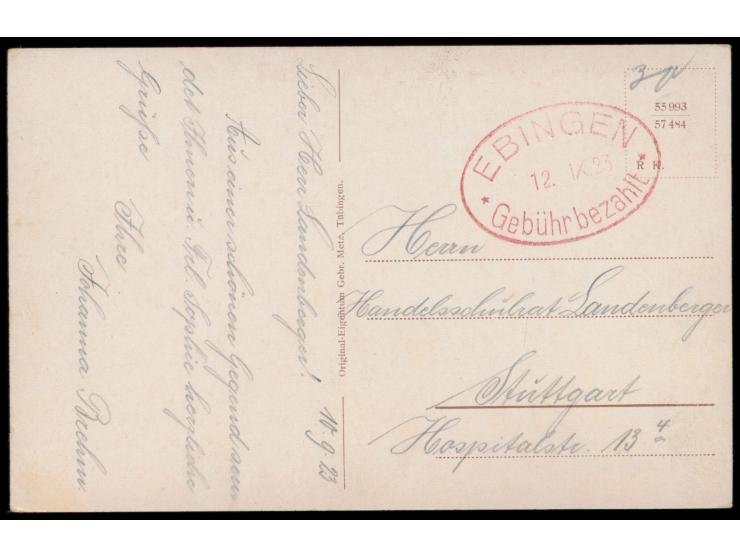 Lieber Herr Landenberger! 10.9.23
Aus einer schönen Gegend sen-
det Ihnen u. Frl. Sophie herzliche
Grüße Ihre
Johanna Brehm
Original-Eigentum Gebr. Metz, Tübingen.
55 993
57 484
R. K.
EBINGEN
12. IX. 23
* Gebühr bezahlt *
Herrn
Handelsschulrat Landenberger
Stuttgart
Hospitalstr. 13 4
a